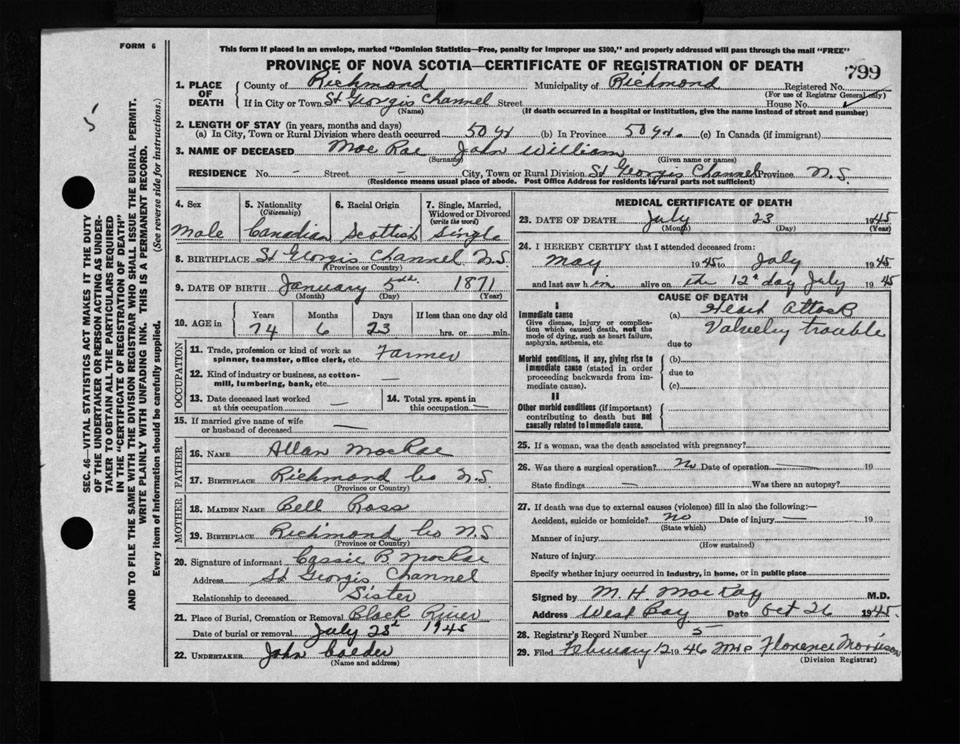 FORM 6
This form if placed in an envelope, marked "Dominion Statistics—Free, penalty for improper use $300," and properly addressed will pass through the mail "FREE"
PROVINCE OF NOVA SCOTIA—CERTIFICATE OF REGISTRATION OF DEATH
799
1. PLACE OF DEATH
County of Richmond Municipality of Richmond Registered No.
(For use of Registrar General only)
If in City or Town St Georgis Channel Street House No.
(Name) (If death occurred in a hospital or institution, give the name instead of street and number)
2. LENGTH OF STAY (in years, months and days)
(a) In City, Town or Rural Division where death occurred 50 yr (b) In Province 50 yr. (c) In Canada (if immigrant)
3. NAME OF DECEASED Mac Rae John William
(Surname) (Given name or names)
RESIDENCE No. - Street - City, Town or Rural Division St Georgis Channel Province N.S.
(Residence means usual place of abode. Post Office Address for residents in rural parts not sufficient)
4. Sex
Male
5. Nationality
(Citizenship)
Canadian
6. Racial Origin
Scottish
7. Single, Married, Widowed or Divorced
(write the word)
Single
8. BIRTHPLACE St Georgis Channel N.S
(Province or Country)
9. DATE OF BIRTH January 5 1871
(Month) (Day) (Year)
10. AGE in
Years Months Days If less than one day old
74 6 23 hrs. or min.
OCCUPATION
11. Trade, profession or kind of work as spinner, teamster, office clerk, etc. Farmer
12. Kind of industry or business, as cotton-mill, lumbering, bank, etc. —
13. Date deceased last worked at this occupation —
14. Total yrs. spent in this occupation —
15. If married give name of wife or husband of deceased —
FATHER
16. NAME Allan MacRae
17. BIRTHPLACE Richmond Co N.S
(Province or Country)
MOTHER
18. MAIDEN NAME Bell Ross
19. BIRTHPLACE Richmond Co N.S
(Province or Country)
20. Signature of informant Cassie B. MacRae
Address St Georgis Channel
Relationship to deceased Sister
21. Place of Burial, Cremation or Removal Black River
Date of burial or removal July 25 1945
22. UNDERTAKER John Calder
(Name and address)
MEDICAL CERTIFICATE OF DEATH
23. DATE OF DEATH July 23 1945
(Month) (Day) (Year)
24. I HEREBY CERTIFY that I attended deceased from:
May 1945 to July 1945
and last saw him alive on the 12 day July 1945
CAUSE OF DEATH
I
Immediate cause
Give disease, injury or complication which caused death, not the mode of dying, such as heart failure, asphyxia, asthenia, etc
(a) Heart Attack
Valvelry trouble
due to
Morbid conditions, if any, giving rise to immediate cause (stated in order proceeding backwards from immediate cause).
(b)
due to
(c)
II
Other morbid conditions (if important) contributing to death but not causally related to immediate cause.
25. If a woman, was the death associated with pregnancy?
26. Was there a surgical operation? No Date of operation — 19
State findings — Was there an autopsy?
27. If death was due to external causes (violence) fill in also the following:—
Accident, suicide or homicide? no Date of injury — 19
(State which)
Manner of injury
(How sustained)
Nature of injury
Specify whether injury occurred in industry, in home, or in public place
Signed by M. H. MacKay M.D.
Address West Bay Date Oct 26 1945.
28. Registrar's Record Number 5
29. Filed February 12 1946 Mrs Florence Morrison
(Division Registrar)
5
SEC. 46—VITAL STATISTICS ACT MAKES IT THE DUTY
OF THE UNDERTAKER OR PERSON ACTING AS UNDER-
TAKER TO OBTAIN ALL THE PARTICULARS REQUIRED
IN THE "CERTIFICATE OF REGISTRATION OF DEATH"
AND TO FILE THE SAME WITH THE DIVISION REGISTRAR WHO SHALL ISSUE THE BURIAL PERMIT.
WRITE PLAINLY WITH UNFADING INK. THIS IS A PERMANENT RECORD.
Every item of information should be carefully supplied. (See reverse side for instructions.)